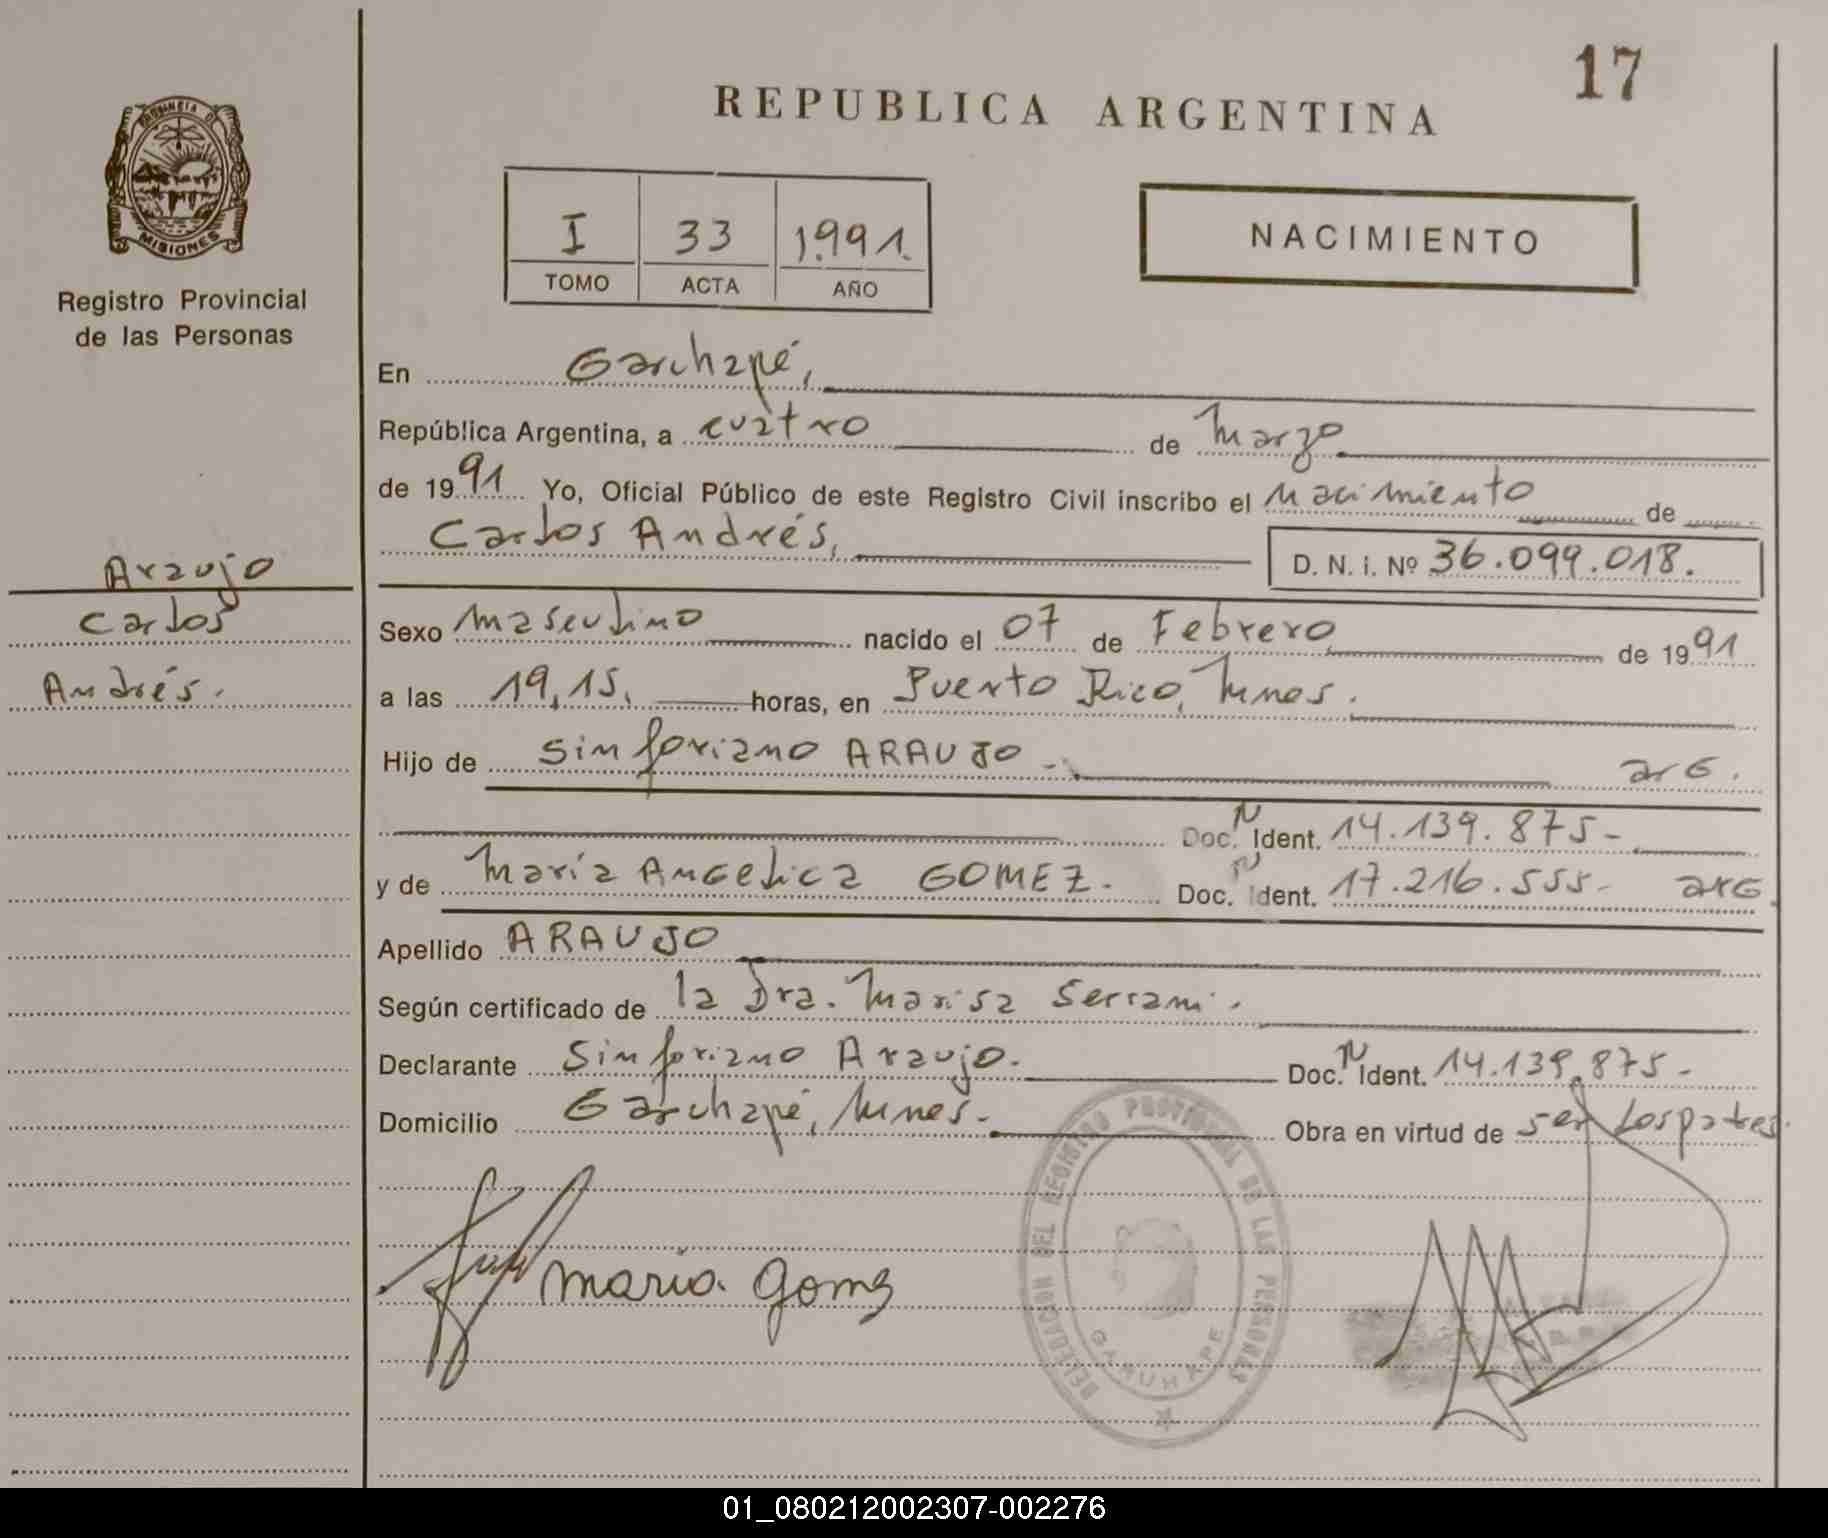 17
REPUBLICA ARGENTINA
PROVINCIA DE
MISIONES
Registro Provincial
de las Personas
I 33 1.991.
TOMO ACTA AÑO
NACIMIENTO
En Garuhapé,
República Argentina, a cuatro de Marzo
de 1991 Yo, Oficial Público de este Registro Civil inscribo el Nacimiento de
Carlos Andrés, D. N. i. Nº 36.099.018.
Araujo
Carlos
Andrés.
Sexo Masculino nacido el 07 de Febrero de 1991
a las 19,15. horas, en Puerto Rico, Mnes.
Hijo de Sinforiano ARAUJO - arG.
Doc. N Ident. 14.139.875-
y de María AnGelica GOMEZ. Doc. N Ident. 17.216.555- arG.
Apellido ARAUJO
Según certificado de la Dra. Marisa Serrani.
Declarante Sinforiano Araujo. Doc. N Ident. 14.139.875-
Domicilio Garuhapé, Mnes.- Obra en virtud de ser los padres.
maria gomez
DELEGACION DEL REGISTRO PROVINCIAL DE LAS PERSONAS
GARUHAPE
01_080212002307-002276